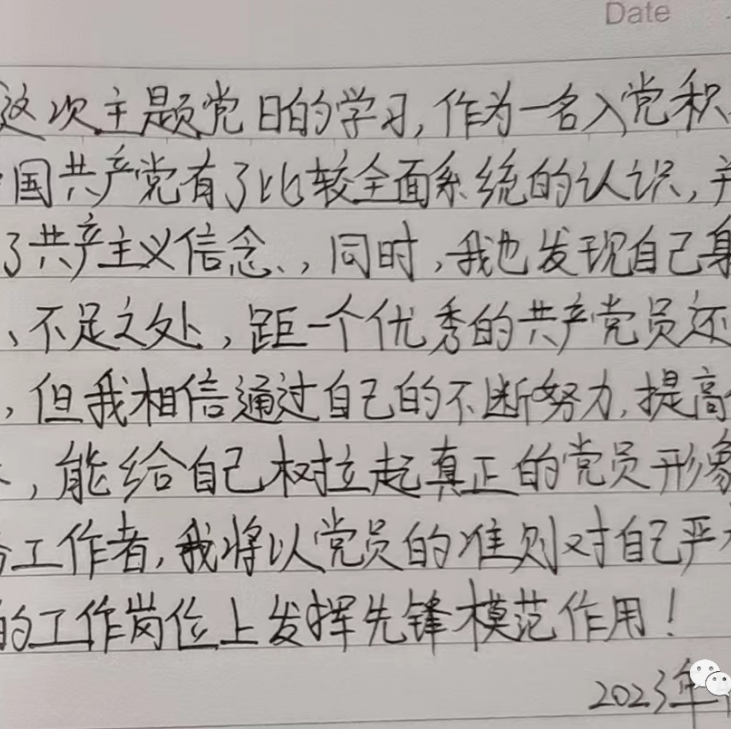 Date
这次主题党日的学习,作为一名入党积
国共产党有了比较全面系统的认识,并
了共产主义信念、,同时,我也发现自己身
、不足之处,距一个优秀的共产党员还
,但我相信通过自己的不断努力,提高
,能给自己树立起真正的党员形象
工作者,我将以党员的准则对自己严
的工作岗位上发挥先锋模范作用!
2023年